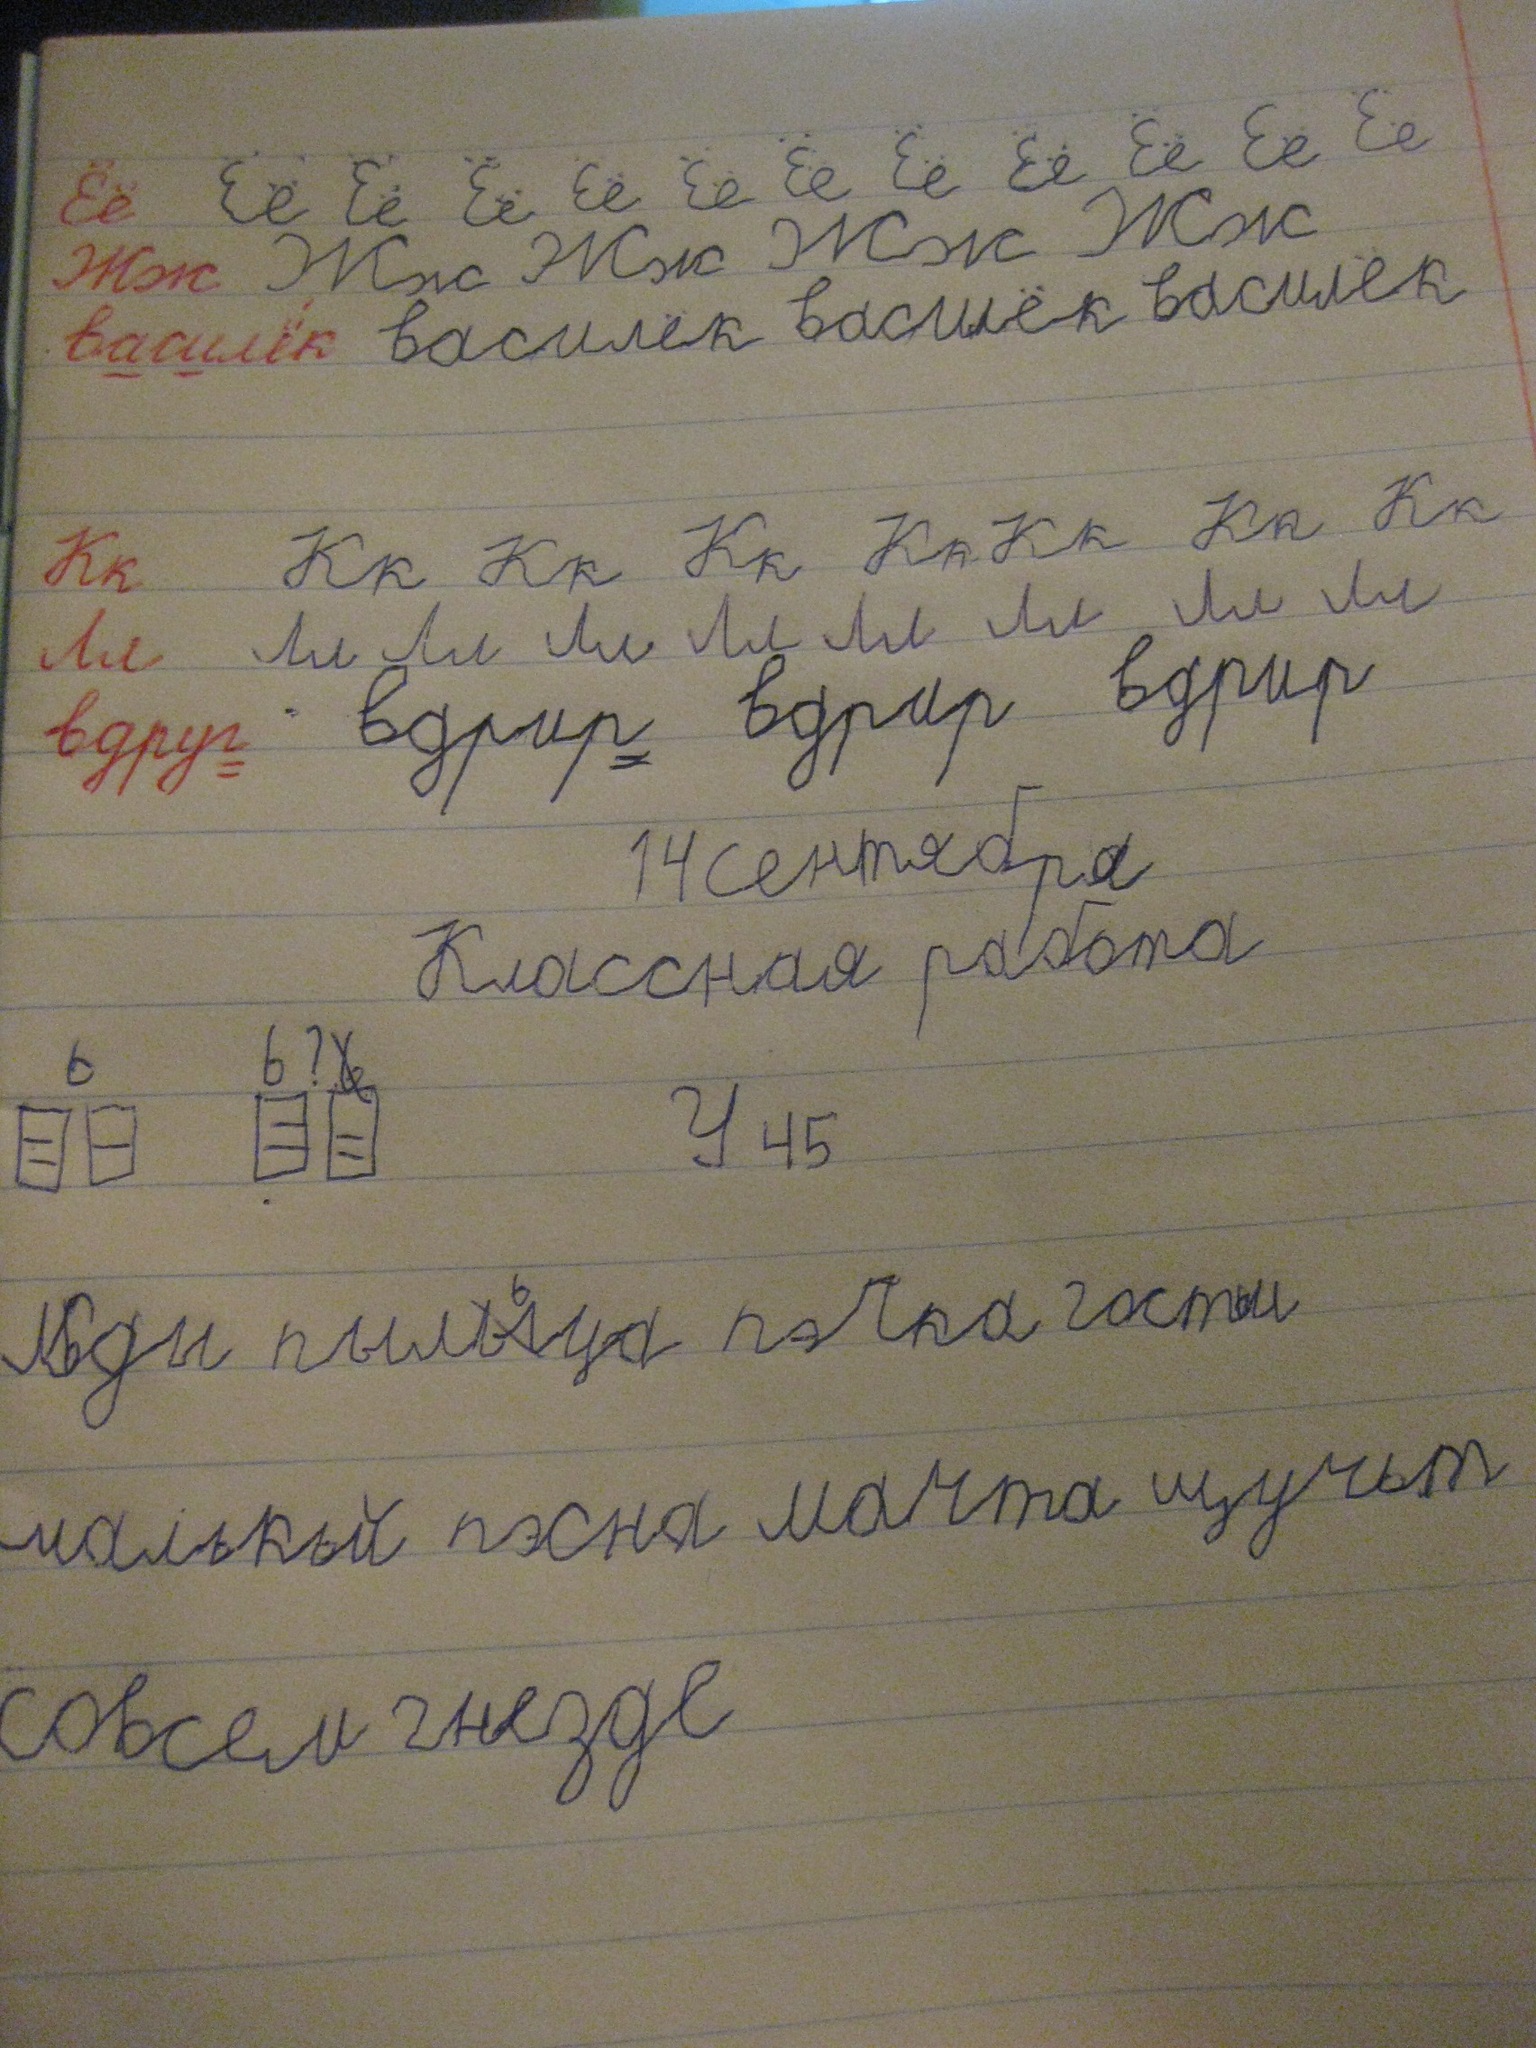 Ёё Ёё Ёё Ёё Ёё Ёё Ёё Ёё Ёё Ёё Ёё Ёё
Жж Жж Жж Жж Жж
василёк василек василёк василек
Кк Кк Кк Кк Кк Кк Кк Кк
Лл Лл Лл Лл Лл Лл Лл Лл Лл
вдруг вдрир вдрир вдрир
14 сентября
Классная работа
ь ь ?
У 45
пэчка гости
малькый пэсна мачта щучьт
совсем гнезде